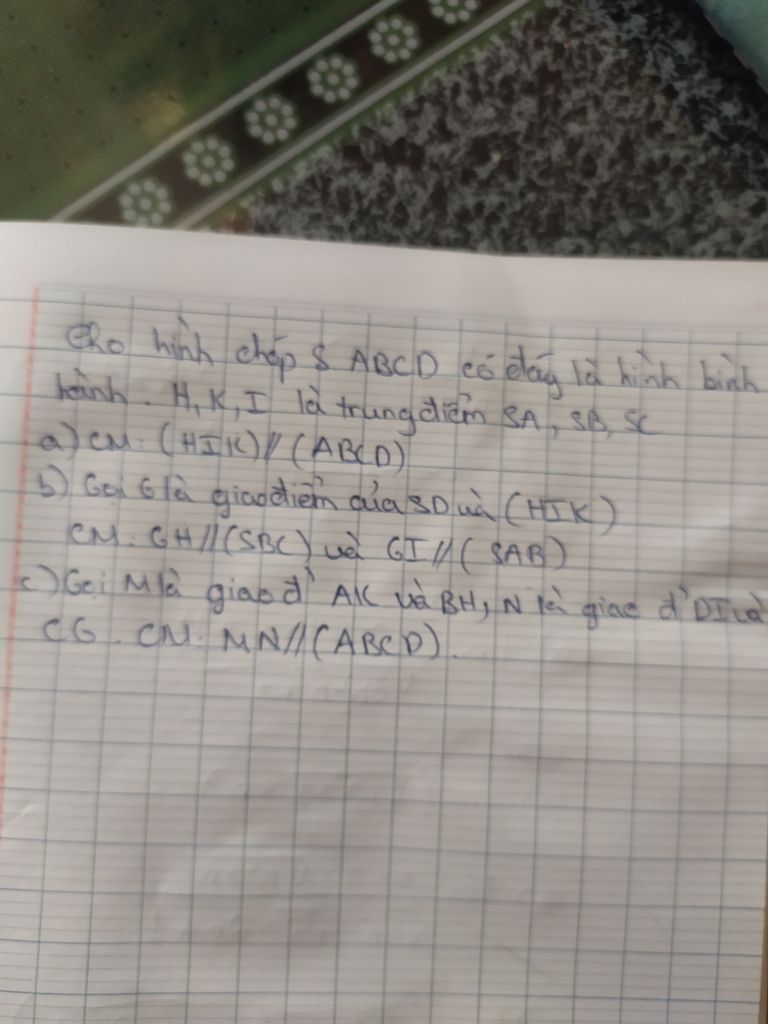 Cho hình chóp S ABCD có đáy là hình bình
hành. H, K, I là trung điểm SA, SB, SC
a) CM: (HIK) // (ABCD)
b) Gọi G là giao điểm của SD và (HIK)
CM: GH // (SBC) và GI // (SAB)
c) Gọi M là giao đ' AK và BH, N là giao đ' DI và
CG. CM: MN // (ABCD).